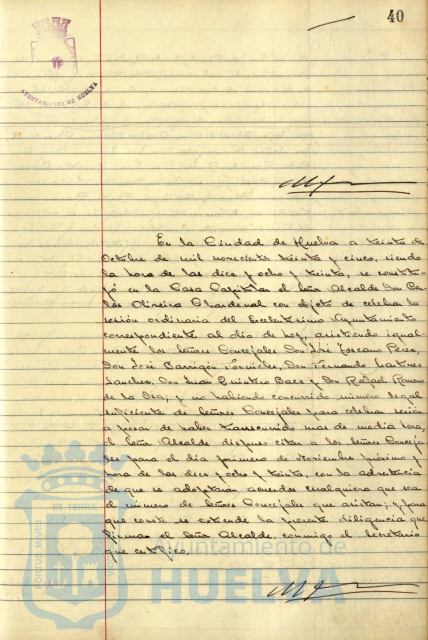 40
AYUNTAMIENTO DE HUELVA
En la Ciudad de Huelva a treinta de
Octubre de mil novecientos treinta y cinco, siendo
la hora de las diez y ocho y treinta, se constitu-
yó en la Casa Capitular el Señor Alcalde Don Car-
los Oliveira Chardenal con objeto de celebrar la
sesión ordinaria del Excelentísimo Ayuntamiento
correspondiente al día de hoy, asistiendo igual-
mente los Señores Concejales Don José Toscano Pérez,
Don José Barrigón Fornieles, Don Fernando Martínez
Sánchez, Don Juan Quintero Baez y Don Rafael Romero
de la Osa; y no habiendo concurrido número legal
suficiente de Señores Concejales para celebrar sesión
a pesar de haber transcurrido mas de media hora,
el Señor Alcalde dispuso citar a los Señores Conceja-
les para el día primero de Noviembre próximo y
hora de las diez y ocho y treinta, con la advertencia
de que se adoptarán acuerdos cualquiera que sea
el número de Señores Concejales que asistan; y para
que conste se extiende la presente diligencia que
firma el Señor Alcalde, conmigo el Secretario
que certifico.
Ayuntamiento de
HUELVA